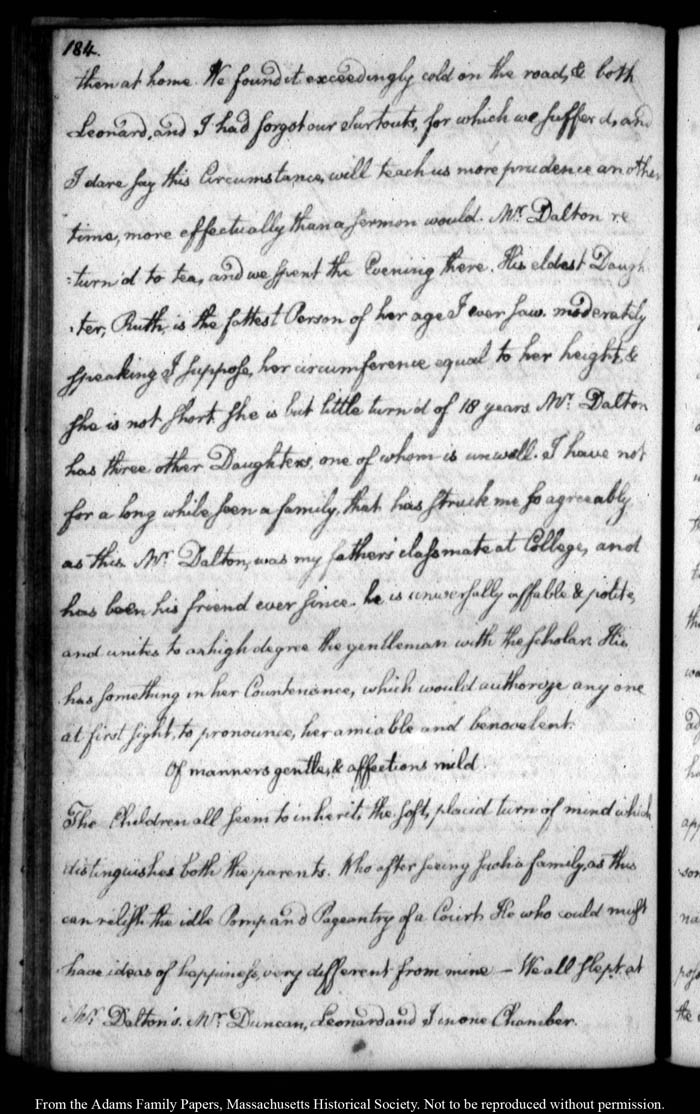 184.
then at home. We found it exceedingly cold on the road, & both
Leonard, and I had forgot our surtouts, for which we suffer'd, and
I dare say this Circumstance, will teach us more prudence another
time, more effectually than a sermon would. Mr. Dalton re
:turn'd to tea, and we spent the Evening there. His eldest Daugh
:ter, Ruth, is the fattest Person of her age I ever saw. moderately
speaking I suppose, her circumference equal to her height, &
she is not short. She is but little turn'd of 18 years. Mr. Dalton
has three other Daughters, one of whom is unwell. I have not
for a long while seen a family, that has struck me so agreeably
as this. Mr. Dalton, was my father's classmate at College, and
has been his friend ever since. he is universally affable & polite,
and unites to a high degree the gentleman with the scholar. His
has something in her Countenance, which would authorize any one
at first sight, to pronounce, her amiable and benevolent.
Of manners gentle, & affections mild.
The Children all seem to inherit, the soft, placid turn of mind which
distinguishes both the parents. Who after seeing such a family, as this
can relish the idle Pomp and Pageantry of a Court. He who could must
have ideas of happiness, very different from mine — We all slept at
Mr. Dalton's. Mr. Duncan, Leonard and I in one Chamber.
From the Adams Family Papers, Massachusetts Historical Society. Not to be reproduced without permission.